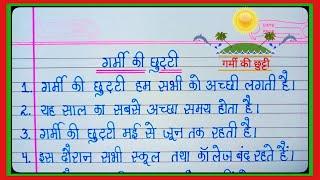 गर्मी की छुट्टी
गर्मी की छुट्टी
1. गर्मी की छुट्टी हम सभी को अच्छी लगती है।
2. यह साल का सबसे अच्छा समय होता है।
3. गर्मी की छुट्टी मई से जून तक रहती है।
4. इस दौरान सभी स्कूल तथा कॉलेज बंद रहते हैं।